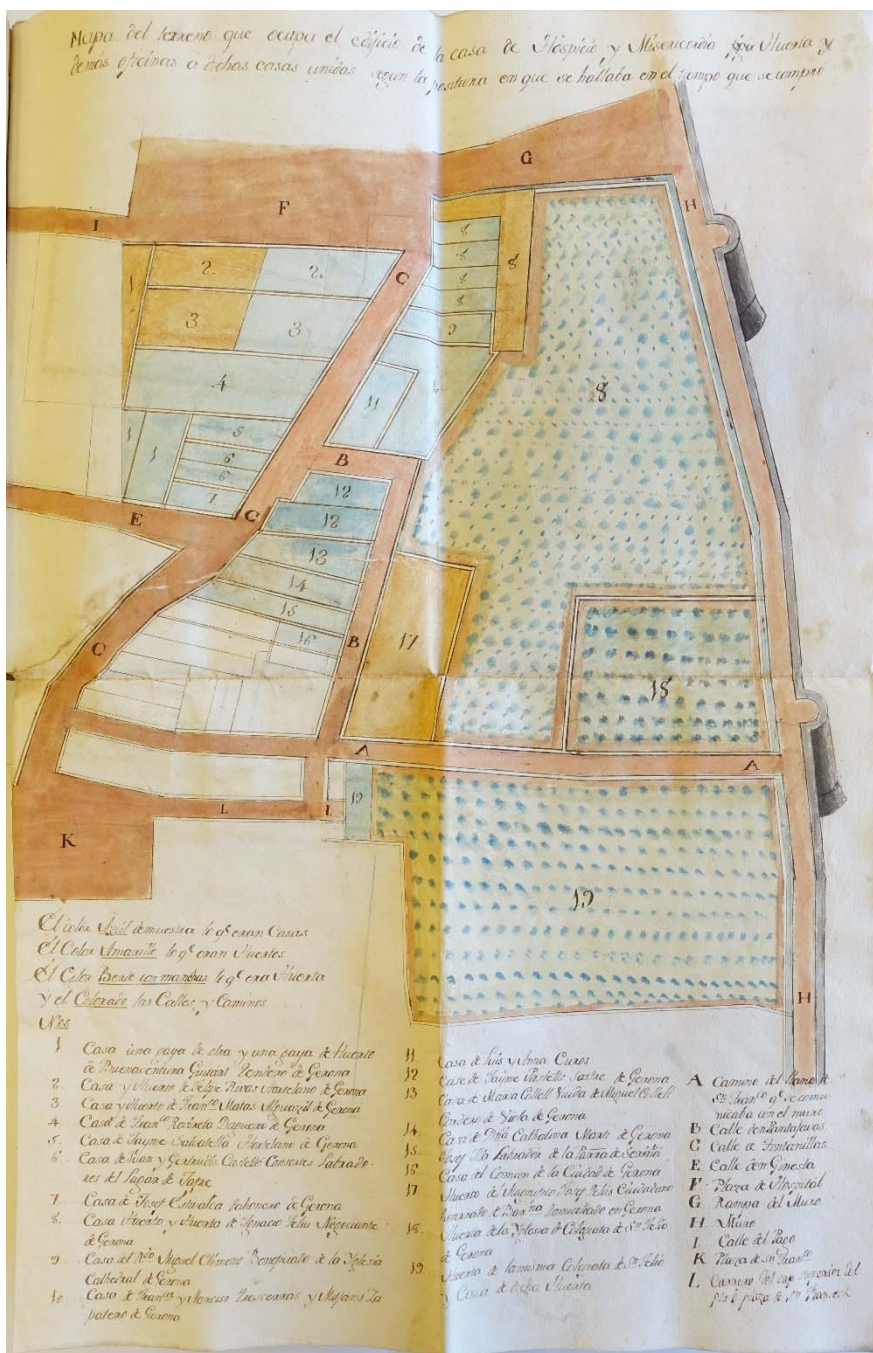 Mapa del terreno que ocupa el edificio de la casa de Hospicio y Misericordia su Huerta y
demás oficinas a dichas casas unidas segun la positura en que se hallaba en el tiempo que se compró
G
H
F
I
8
2 2
C
8
8
8
8
1
3 3
9
4
8
11
1 1
5
B
6
6
12
7
E
C
12
13
14
15
16
B
17
C
18
A
A
L
L
19
K
19
H
El color Azul demuestra lo q.e eran Casas
El Color Amarillo lo q.e eran Huertos
El Color Verde con manchas lo q.e era Huerta
Y el Colorado las Calles, y Caminos
N.os
1 Casa una paga de otra y una paga de Huerto
de Buenaventura Guitart de Gerona
2 Casa y Huerto de Felipe Rivas Ortelano de Gerona
3 Casa y Huerto de Fran.co Matas Alguazil de Gerona
4 Casa de Fran.co de Gerona
5 Casa de Jayme Salvatella Hortelano de Gerona
6 Casa de Juan y Gertrudis Castelló Consortes Labrado-
res del Lugar de
7 Casa de Josef de Gerona
8 Casa Huerto y Huerta de Ignacio Negociante
de Gerona
9 Casa del R.do Miguel Climent Beneficiado de la Yglesia
Cathedral de Gerona
10 Casa de Fran.ca y Narciso y Za
patero de Gerona
11 Casa de Luis y Anna Curos
12 Casa de Jayme Sastre de Gerona
13 Casa de Maria Viuda de Miguel
de Gerona
14 Casa de D.ña Catholina Marti de Gerona
15 Josef Labrador de la Parra de Serriñá
16 Casa el Comun de la Ciudad de Gerona
17 Huerto de Josef Ciudadano
Honrado de domiciliado en Gerona
18 Huerta de la Yglesia de Colegiata de S.n Felio
de Gerona
19 Huerta de la misma Colegiata de S.n Felio
y Casa de dicha Huerta
A Camino del llano de
S.n Fran.co q.e se comu-
nicaba con el muro
B Calle den
C Calle de Fontanillas
E Calle den Ginesta
F Plaza de Hospital
G Rampa del Muro
H Muro
I Calle del
K Plaza de S.n Fran.co
L plaza de S.n